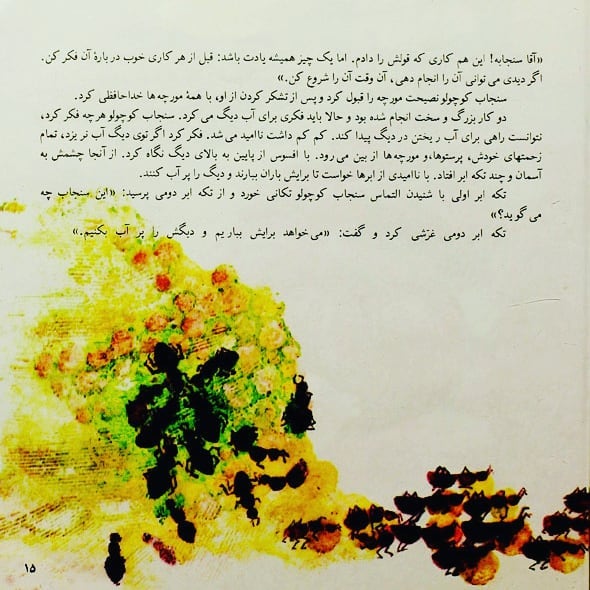 «آقا سنجابه! این هم کاری که قولش را دادم. اما یک چیز همیشه یادت باشد: قبل از هر کاری خوب دربارهٔ آن فکر کن.
اگر دیدی می‌توانی آن را انجام دهی، آن وقت آن را شروع کن.»
سنجاب کوچولو نصیحت مورچه را قبول کرد و پس از تشکر کردن از او، با همهٔ مورچه‌ها خداحافظی کرد.
دو کار بزرگ و سخت انجام شده بود و حالا باید فکری برای آب دیگ می‌کرد. سنجاب کوچولو هرچه فکر کرد،
نتوانست راهی برای آب ریختن در دیگ پیدا کند. کم کم داشت ناامید می‌شد. فکر کرد اگر توی دیگ آب نریزد، تمام
زحمتهای خودش، پرستوها، و مورچه‌ها از بین می‌رود. با افسوس از پایین به بالای دیگ نگاه کرد. از آنجا چشمش به
آسمان و چند تکه ابر افتاد. با ناامیدی از ابرها خواست تا برایش باران ببارند و دیگ را پر آب کنند.
تکه ابر اولی با شنیدن التماس سنجاب کوچولو تکانی خورد و از تکه ابر دومی پرسید: «این سنجاب چه
می‌گوید؟»
تکه ابر دومی غرّشی کرد و گفت: «می‌خواهد برایش بباریم و دیگش را پر آب بکنیم.»
۱۵